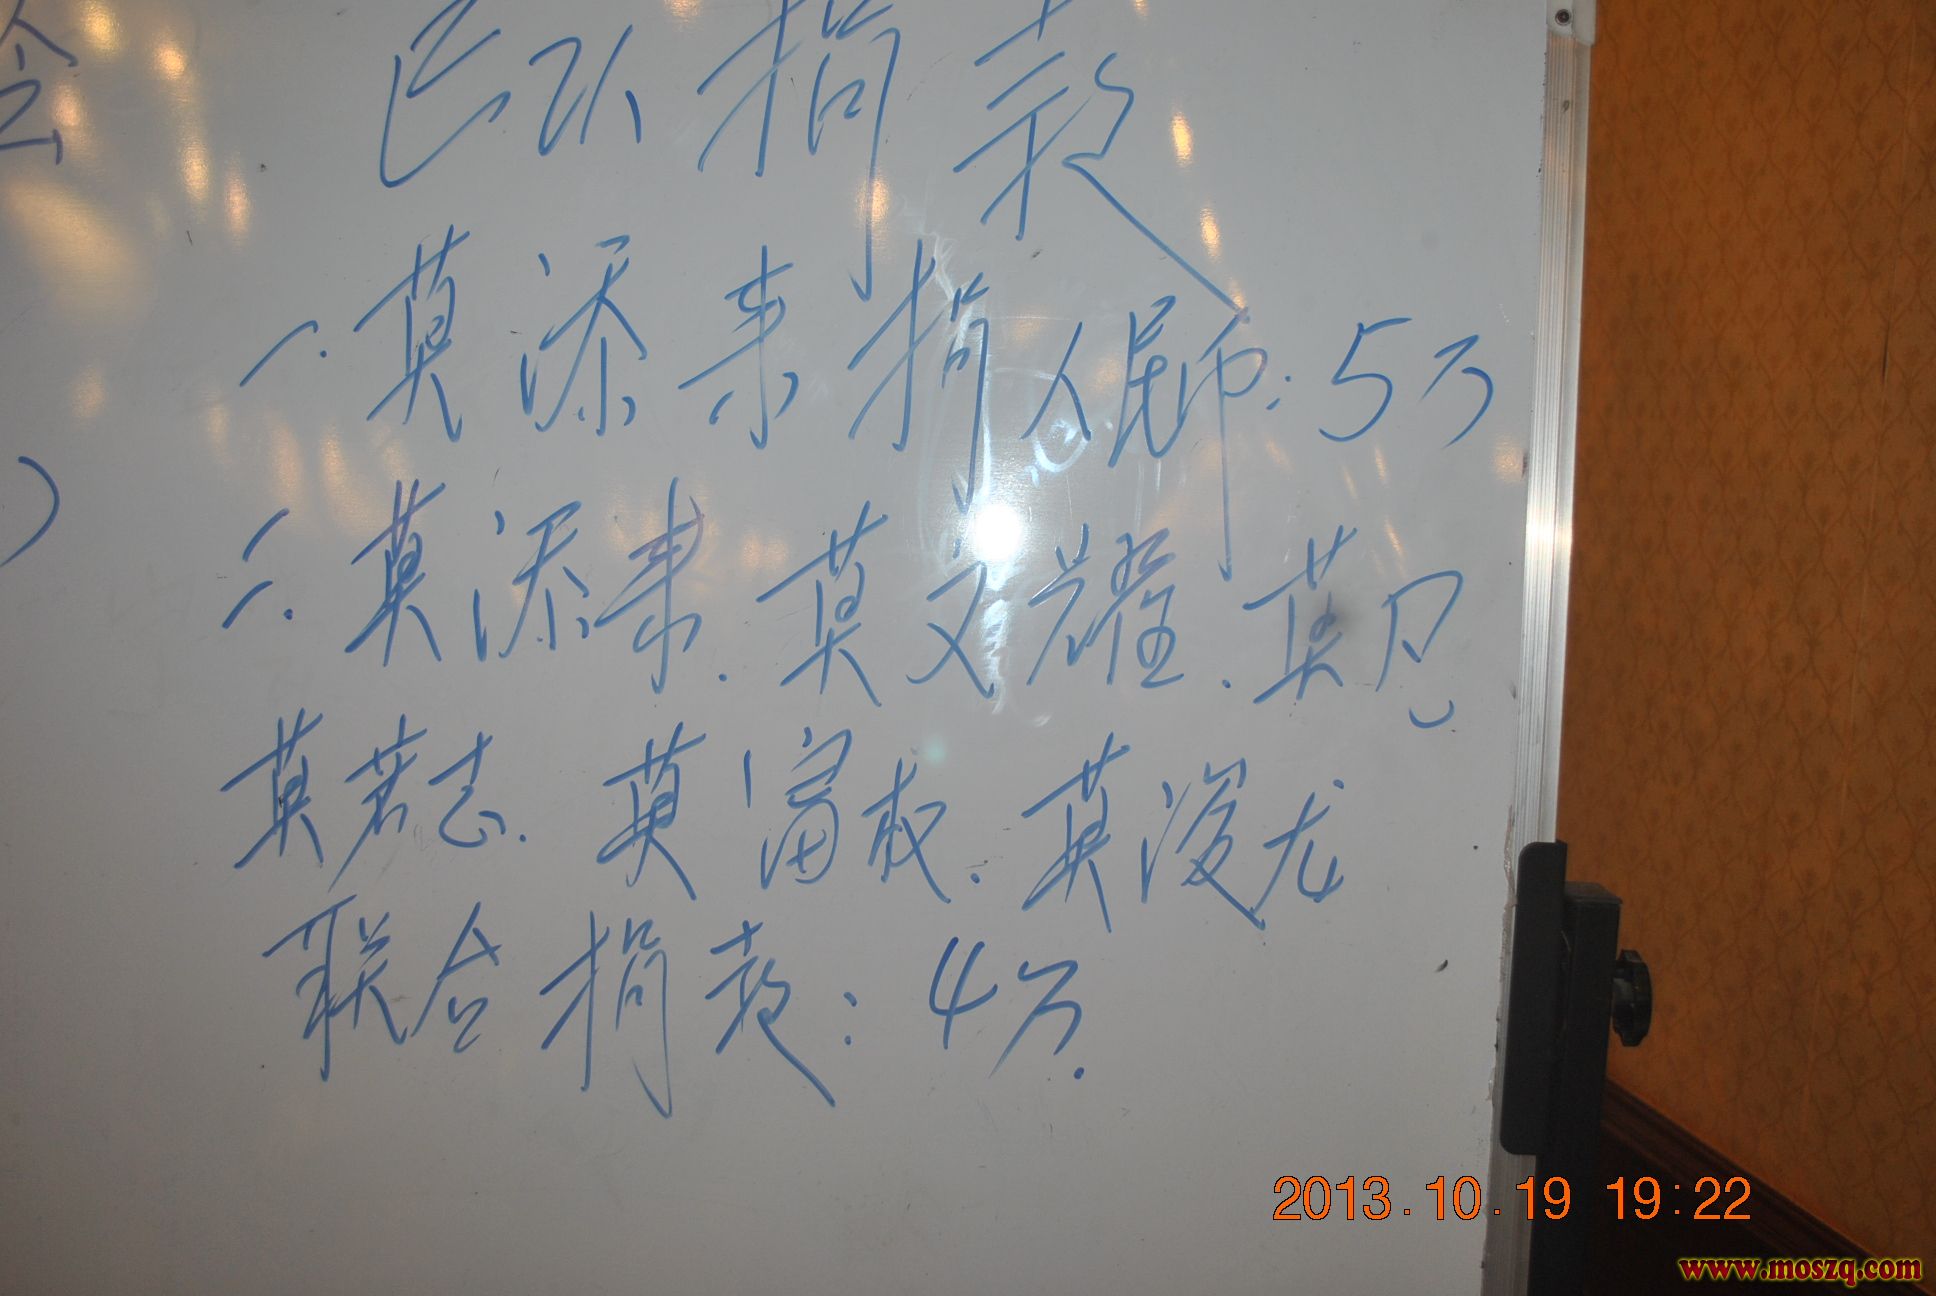 会
已认捐款
一.莫添来捐人民币:5万
二.莫添来.莫文耀.莫凡
莫若志.莫富权.莫浚龙
联合捐款:4万.
)
2013.10.19 19:22
www.moszq.com